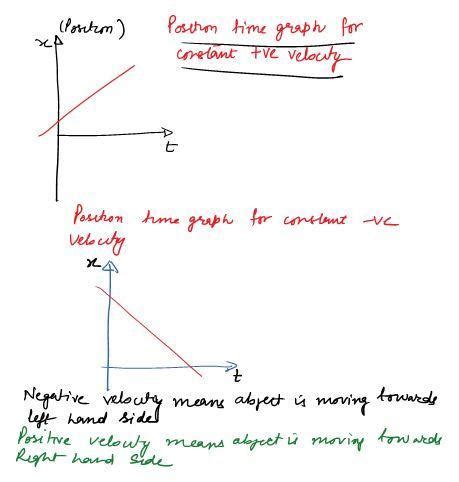 (Position)
x
Position time graph for
constant +ve velocity
t
Position time graph for constant -ve
velocity
x
t
Negative velocity means abject is moving towards
left hand side
Positive velocity means abject is moving towards
Right hand side